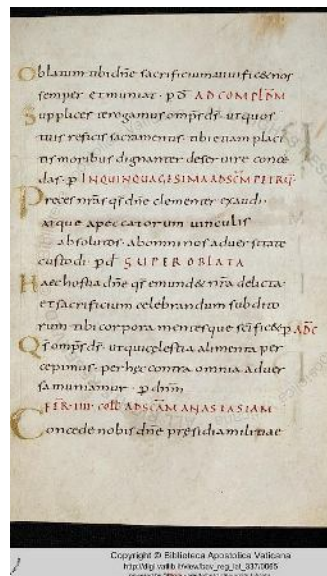 Oblatum tibi dñe sacrificium uiuificet nos
semper et muniat · p dñ AD COMPLDM
Supplices te rogamus omps ds · ut quos
tuis reficis sacramentis · tibi etiam placi
tis moribus dignanter deseruire conce
das · p IN QUINQUAGESIMA AD SCM PETRU
Preces nras qs dñe clementer exaudi ·
atque a peccatorum uinculis
absolutos · ab omni nos aduersitate
custodi · p d SUPER OBLATA
Haec hostia dñe qs emundet nra delicta ·
et sacrificium celebrandum subdito
rum tibi corpora mentesque scificet p AD C
Qs omps ds · ut qui celestia alimenta per
cepimus · per hec contra omnia aduer
sa muniamur · p dnm
FER · IIII · coll AD SCAM ANASTASIAM
Concede nobis dñe presidia militiae
Copyright © Biblioteca Apostolica Vaticana
http://digi.vatlib.it/view/bav_reg_lat_337/0065